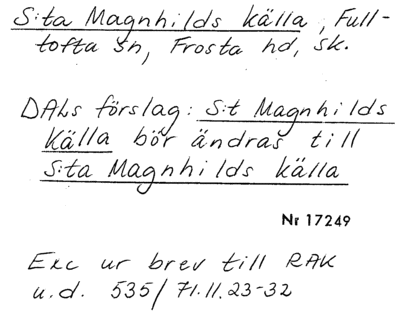 S:ta Magnhilds källa, Full-
tofta sn, Frosta hd, sk.
DALs förslag: S:t Magnhilds
Källa bör ändras till
S:ta Magnhilds källa
Nr 17249
Exc ur brev till RAK
u.d. 535/71.11.23-32